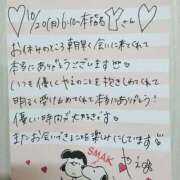 10/20(月)6:10~本指名
Yさん
お休みのところ朝早く会いに来てくれて
本当にありがとうございます♡
いつも優しくやえのことを抱きしめてくれて
明るく受け止めてくれて本当にありがとう!
優しい時間が大好きです♡
またお会いできることを楽しみにしています♡
SMAK
やえ